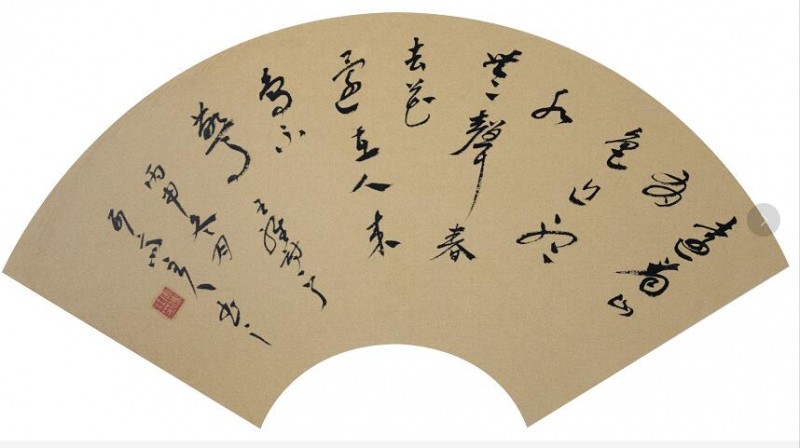 遠看山
有
色近听
水
無聲春
去花
還在人來
鳥不
驚
王維詩
丙申冬月
書